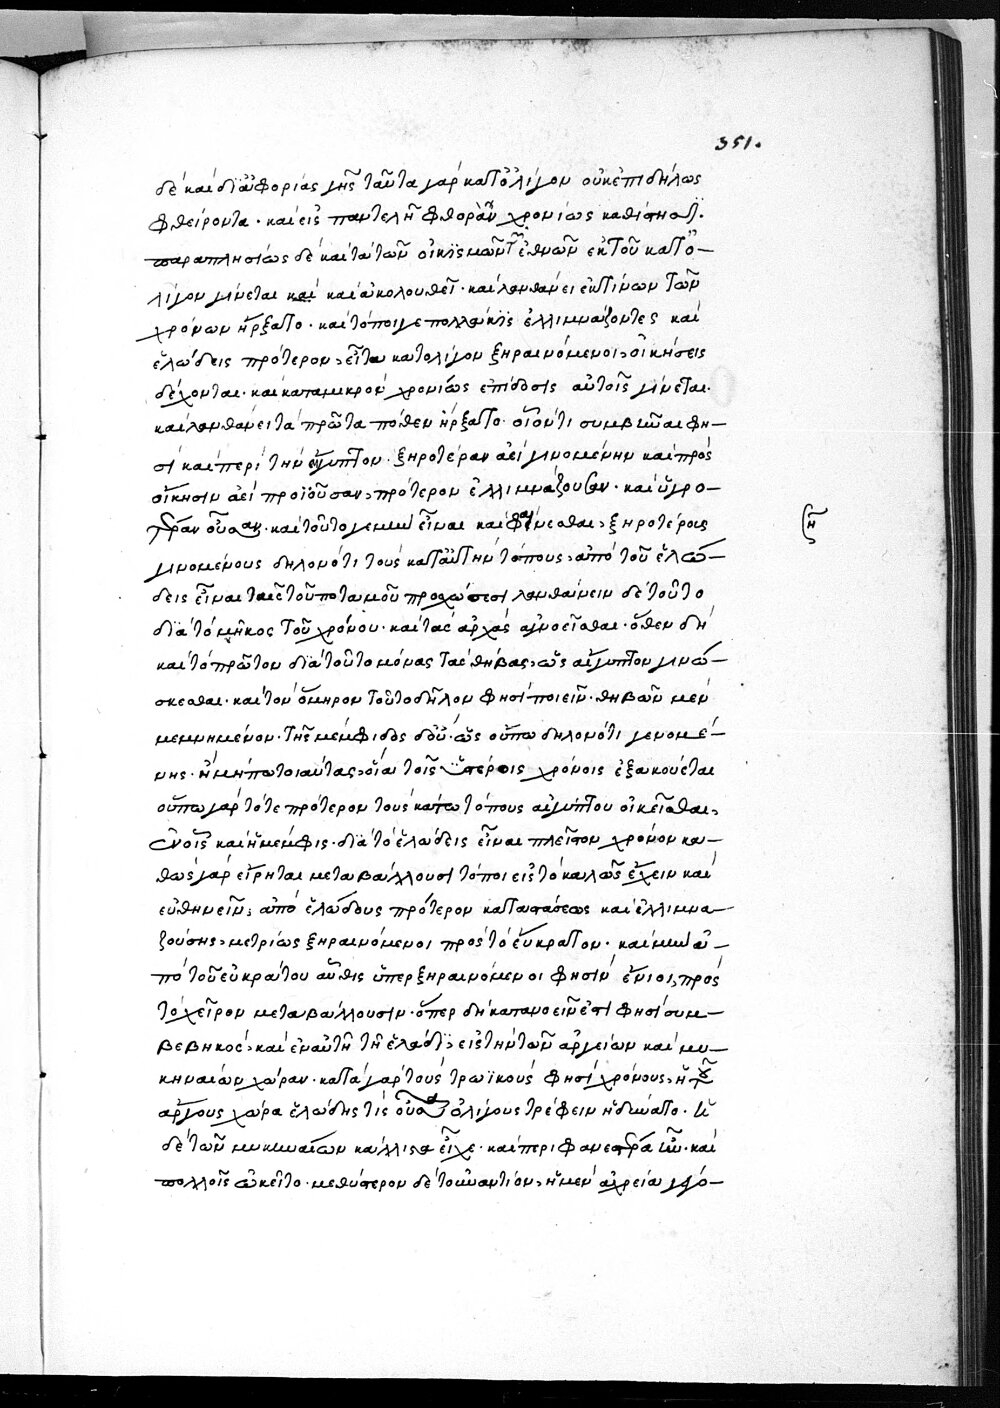 351.
δὲ καὶ δι' ἀφορίας γῆς ταῦτα γὰρ κατ' ὀλίγον οὐκ ἐπιδήλως
φθείροντα. καὶ εἰς παντελῆ φθορὰν χρονίως καθίστησι.
παραπλησίως δὲ καὶ τὰ τῶν οἰκισμῶν τῶν ἐθνῶν ἐκ τοῦ κατ' ὀ-
λίγον γίνεται καὶ καὶ ἀκολουθεῖ. καὶ λανθάνει ἐκ τίνων τῶν
χρόνων ἤρξατο. καὶ τόποι γε πολλάκις ἐλλιμνάζοντες καὶ
ἑλώδεις πρότερον, εἶτα κατολίγον ξηραινόμενοι, οἰκήσεις
δέχονται. καὶ καταμικρὸν χρονίως ἐπίδοσις αὐτοῖς γίνεται.
καὶ λανθάνει τὰ πρῶτα πόθεν ἤρξατο. οἷόν τι συμβῆναι φη-
σὶ καὶ περὶ τὴν αἴγυπτον. ξηροτέραν ἀεὶ γινομένην καὶ πρὸς
οἴκησιν ἀεὶ προϊοῦσαν, πρότερον ἐλλιμνάζουσαν. καὶ ὑγρο-
τέραν οὖσαν. καὶ τοῦτο γενῶν εἶναι καὶ φαίνεσθαι, ξηροτέροις
γινομένους δηλονότι τοὺς κατ' αὐτὴν τόπους, ἀπὸ τοῦ ἑλώ-
δεις εἶναι ταῖς τοῦ ποταμοῦ προχώσεσι λανθάνειν δὲ τοῦτο
διὰ τὸ μῆκος τοῦ χρόνου. καὶ τὰς ἀρχὰς ἀγνοεῖσθαι. ὅθεν δὴ
καὶ τὸ πρῶτον διὰ τοῦτο μόνας τὰς θήβας, ὡς αἴγυπτον γινώ-
σκεσθαι. καὶ τὸν ὅμηρον τοῦτο δῆλον φησὶ ποιεῖν. θηβῶν μὲν
μεμνημένον. τῆς μέμφιδος δ' οὔ. ὡς οὔπω δηλονότι γενομέ-
νης. ἢ μήπω τοιαύτας, οἵα τοῖς ὕστεροις χρόνοις ἐξακούεται
οὔπω γὰρ τότε πρότερον τοὺς κάτω τόπους αἰγύπτου οἰκεῖσθαι,
ἐν οἷς καὶ ἡ μέμφις. διὰ τὸ ἑλώδεις εἶναι πλεῖστον χρόνον κα-
θὼς γὰρ εἴρηται μεταβάλλουσι τόποι εἰς τὸ καλῶς ἔχειν καὶ
εὐθηνεῖν, ἀπὸ ἑλώδους πρότερον καταστάσεως καὶ ἐλλιμνα-
ζούσης, μετρίως ξηραινόμενοι πρὸς τὸ εὔκρατον. καὶ μὴν ἀ-
πὸ τοῦ εὐκράτου αὖθις ὑπερξηραινόμενοι φησὶν ἔνιοι, πρὸς
τὸ χεῖρον μεταβάλλουσιν. ὅπερ δὴ κατανοεῖν ἐστί φησὶ συμ-
βεβηκός, καὶ ἐν αὐτῇ τῇ ἑλλάδι, εἰς τὴν τῶν ἀργείων καὶ μυ-
κηναίων χώραν. κατὰ γὰρ τοὺς τρωϊκοὺς φησὶ χρόνους, ἡ τοῦ
ἄργους χώρα ἑλώδης τίς οὖσα ὀλίγους τρέφειν ἠδύνατο. ἡ
δὲ τῶν μυκηναίων κάλλιστα εἶχε. καὶ περιφανεστέρα ἦν. καὶ
πολλοῖς ᾠκεῖτο. μεθύστερον δὲ τοὐναντίον, ἡ μὲν ἀχρεία γέγο-